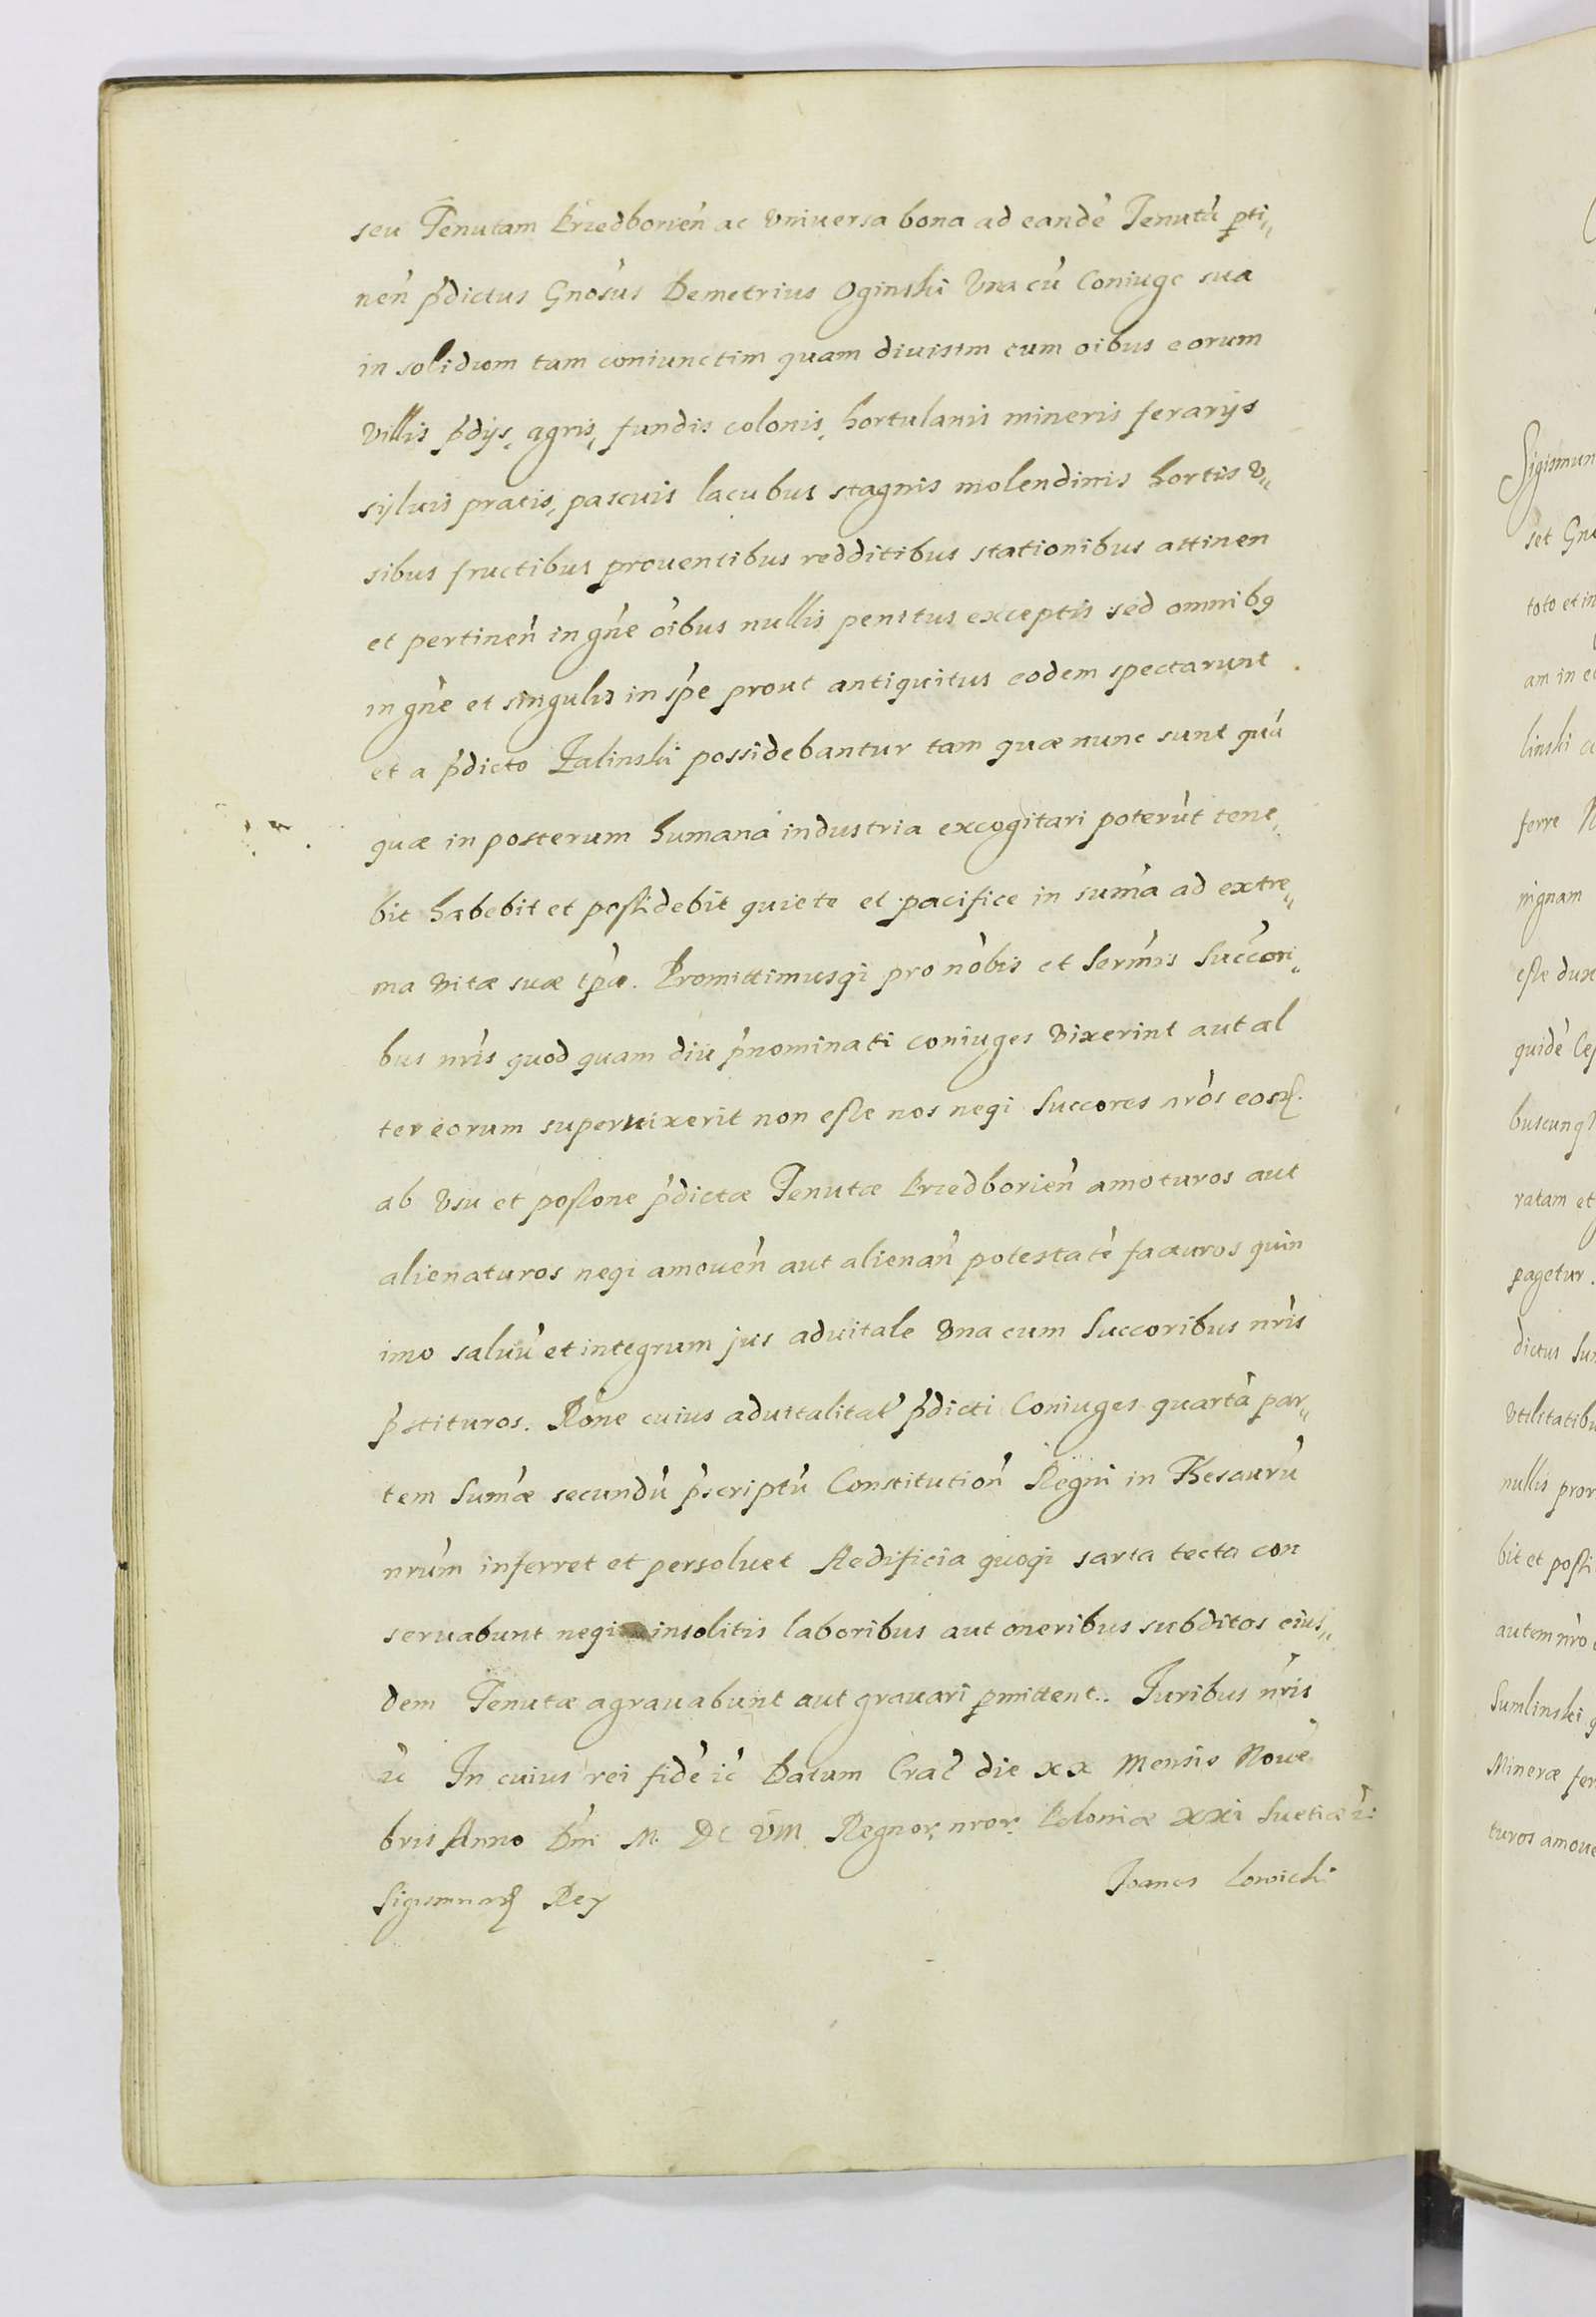 seu Tenutam Przedborień ac Vniuersa bona ad eandē Tenutā ꝑti„
neń p̄dictus Gnōsus Demetrius Oginski Vna cū Coniuge sua
in solidum tam coniunctim quam diuisim cum oibus eorum
Villis p̄dijs, agris, fundis colonis, hortulanis mineris ferarijs
syluis pratis, pascuis lacubus stagnis molendinis hortis V„
sibus fructibus prouentibus redditibus stationibus attinen
et pertineń in gn̄e ōibus nullis penitus exceptis sed omnibꝰ
in gn̄e et singulis in sp̄e prout antiquitus eodem spectarunt
et a p̄dicto Zalinski possidebantur tam quæ nunc sunt quā
quæ in posterum humana industria excogitari poterūt tene„
bit habebit et possidebit quiete et pacifice in sum̄a ad extre„
ma vitæ suæ tp̄a. Promittimusqꝫ pro nobis et Serm̄is Succori„
bus nr̄is quod quam diu p̄nominati coniuges vixerint aut al
ter eorum superuixerit non esse nos neqꝫ Succores nrōs eosd.
ab Vsu et possone p̄dictæ Tenutæ Przedborień amoturos aut
alienaturos neqꝫ amoueń aut alienań potestatē facturos quin
imo saluū et integrum jus aduitale Vna cum Succoribus nr̄is
p̄stituros. Rōne cuius aduitalitat̄ p̄dicti Coniuges quartā par„
tem Sum̄æ secundū p̄scriptū Constitutioń Regni in Thesaurū
nrūm inferret et persoluet Aedificia quoqꝫ sarta tecta con
seruabunt neqꝫ insolitis laboribus aut oneribus subditos eius„
dem Tenutæ agrauabunt aut grauari ꝑmittent. Iuribus nr̄is
ꝛc̄ In cuius rei fidē ꝛc̄ Datum Crac̄ die xx Mensis Nouē
bris Anno Dn̄i M. DC VIII Regnor. nror. Poloniæ xxi Suetiæ ꝛ:
Sigismund Rex
Joanes Lowicki

Sigismun
set Gn
toto et in
am in e
linski
ferre
nignam
esse dux
quidē
buscunq
ratam et
ꝑagetur.
dictus
Vtilitatibu
nullis pror
bit et possi
autem nr̄o
Sumlinski
Mineræ fer
turos amoue